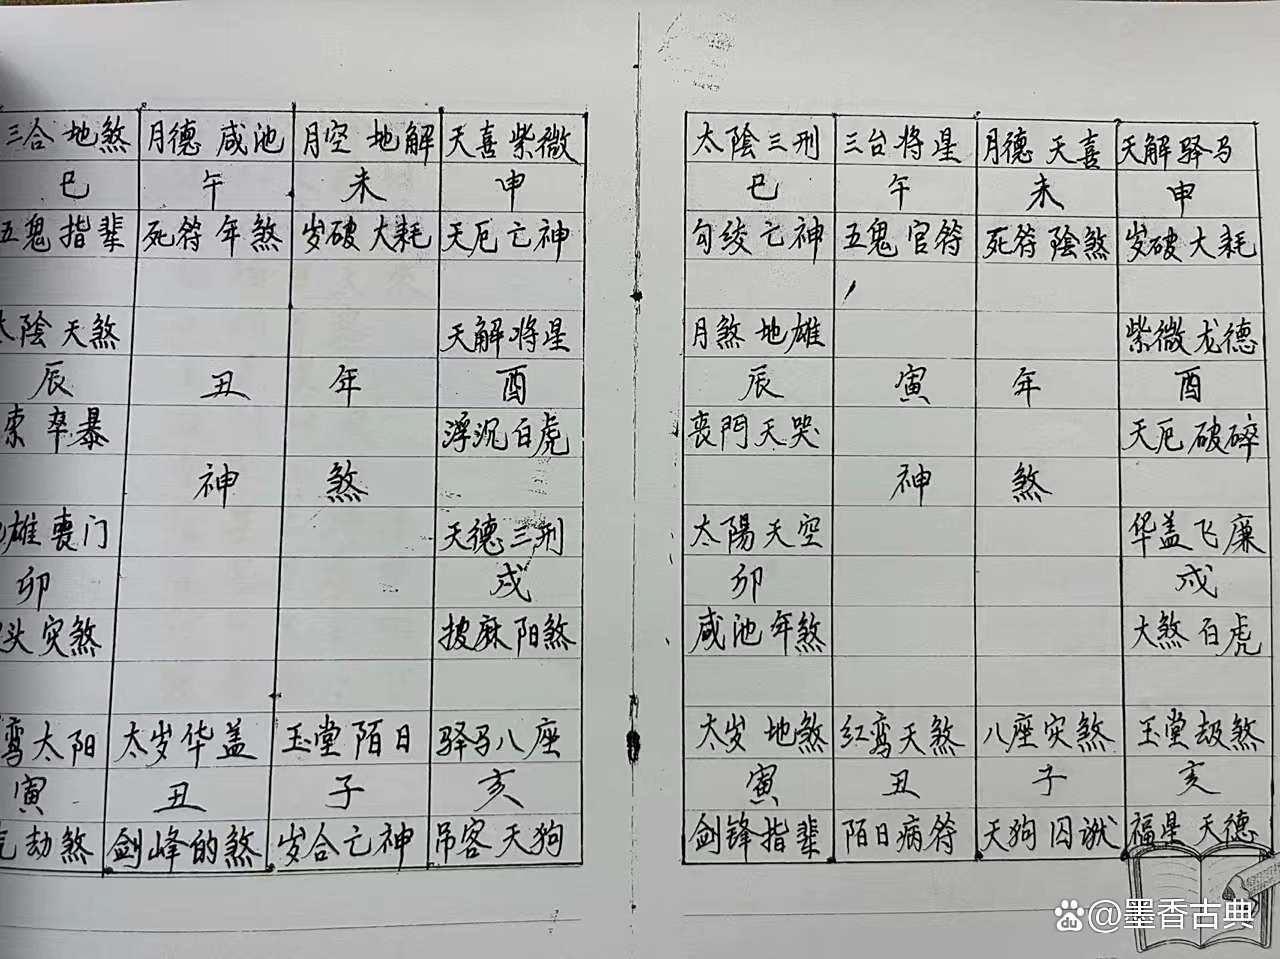 三合 地煞 月德 咸池 月空 地解 天喜紫微
巳 午 未 申
五鬼 指辈 死符 年煞 岁破 大耗 天厄亡神
太陰 天煞 天解将星
辰 丑 年 酉
索 卒暴 浮沉白虎
神 煞
雄 喪门 天德三刑
卯 戌
头 灾煞 披麻阳煞
鸾太阳 太岁华盖 玉堂陌日 驿马八座
寅 丑 子 亥
劫煞 剑峰的煞 岁合亡神 吊客天狗
太陰三刑 三台将星 月德 天喜 天解驿马
巳 午 未 申
勾绞亡神 五鬼官符 死符 陰煞 岁破大耗
月煞 地雄 紫微龙德
辰 寅 年 酉
喪門天哭 天厄破碎
神 煞
太陽天空 华盖飞廉
卯 戌
咸池年煞 大煞白虎
太岁 地煞 红鸾天煞 八座灾煞 玉堂劫煞
寅 丑 子 亥
剑锋指辈 陌日病符 天狗囚狱 福星天德
Bai du @墨香古典